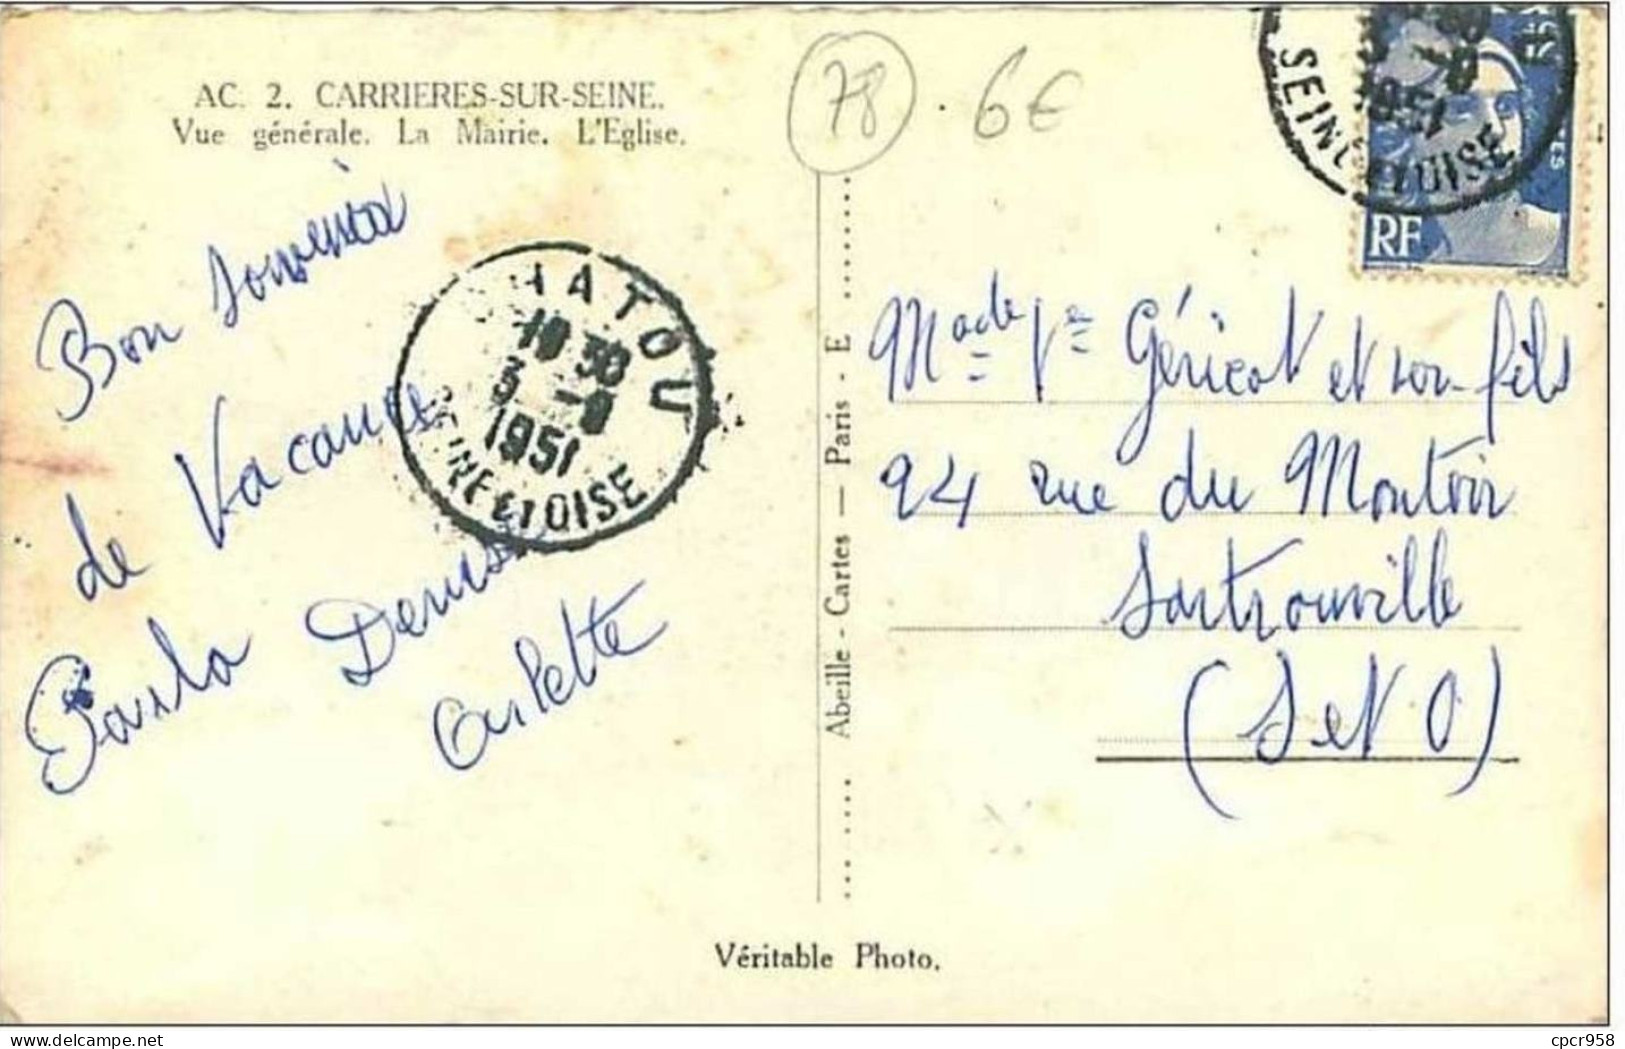 AC. 2. CARRIERES-SUR-SEINE.
Vue générale. La Mairie. L'Eglise.
78 . 6€
Bon souvenir
de Vacances
Paula Denise
Arlette
HATOU
10 30
3 -9
1951
SEINE ET OISE
Abeille - Cartes — Paris - E
1951
SEINE OISE
RF
Made Ve Géricot et son fils
24 rue du Montoir
Sartrouville
(S et O)
Véritable Photo.
cpcr958